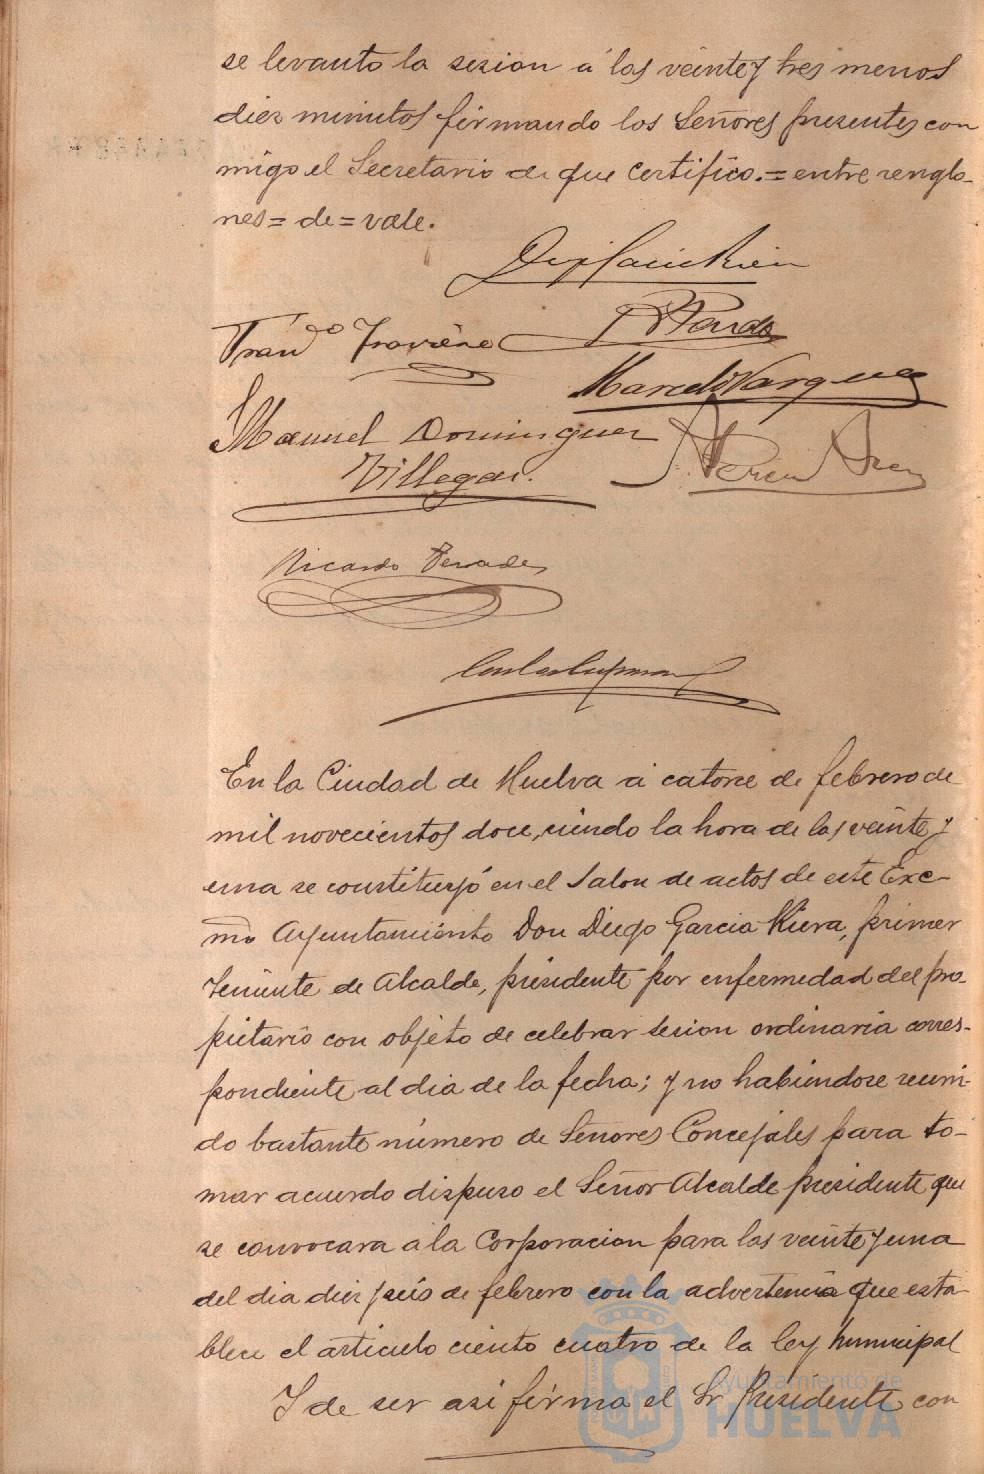 se levanto la sesion á las veinte y tres menos
diez minutos firmando los Señores presentes con
migo el Secretario de que certifico.=entre renglo-
nes=de=vale.
Fran.do
Marcelo Vazquez
Manuel Dominguez
Villegas.
Ricardo Terrades
En la Ciudad de Huelva a catorce de febrero de
mil novecientos doce, siendo la hora de las veinte y
una se constituyó en el Salon de actos de este Exc-
mo Ayuntamiento Don Diego Garcia Riera, primer
Teniente de Alcalde, presidente por enfermedad del pro-
pietario con objeto de celebrar sesion ordinaria corres-
pondiente al dia de la fecha; y no habiendose reuni-
do bastante número de Señores Concejales para to-
mar acuerdo dispuso el Señor Alcalde presidente que
se convocara a la Corporacion para las veinte y una
del dia diez y seis de febrero con la advertencia que esta-
blece el articulo ciento cuatro de la ley municipal
Y de ser asi firma el Sr Presidente con
Ayuntamiento de
HUELVA